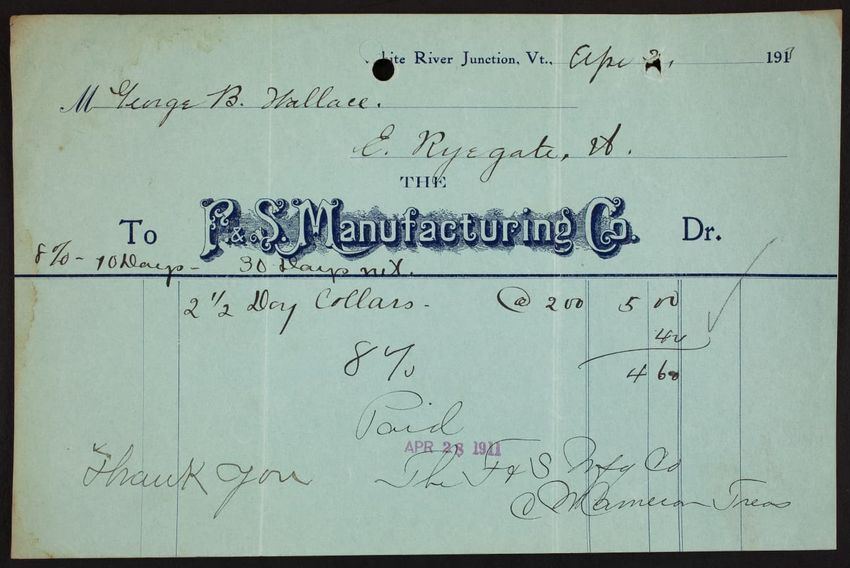 ite River Junction, Vt., Apr 2, 191
M George B. Wallace.
E. Ryegate, Vt.
THE
To F. & S. Manufacturing Co. Dr.
8% - 10 Days - 30 Days net.
2 1/2 Doz Collars - @ 2 00 5 00
40
8% 4 60
Paid
APR 28 1911
Thank you The F & S Mfg Co
Cameron Treas